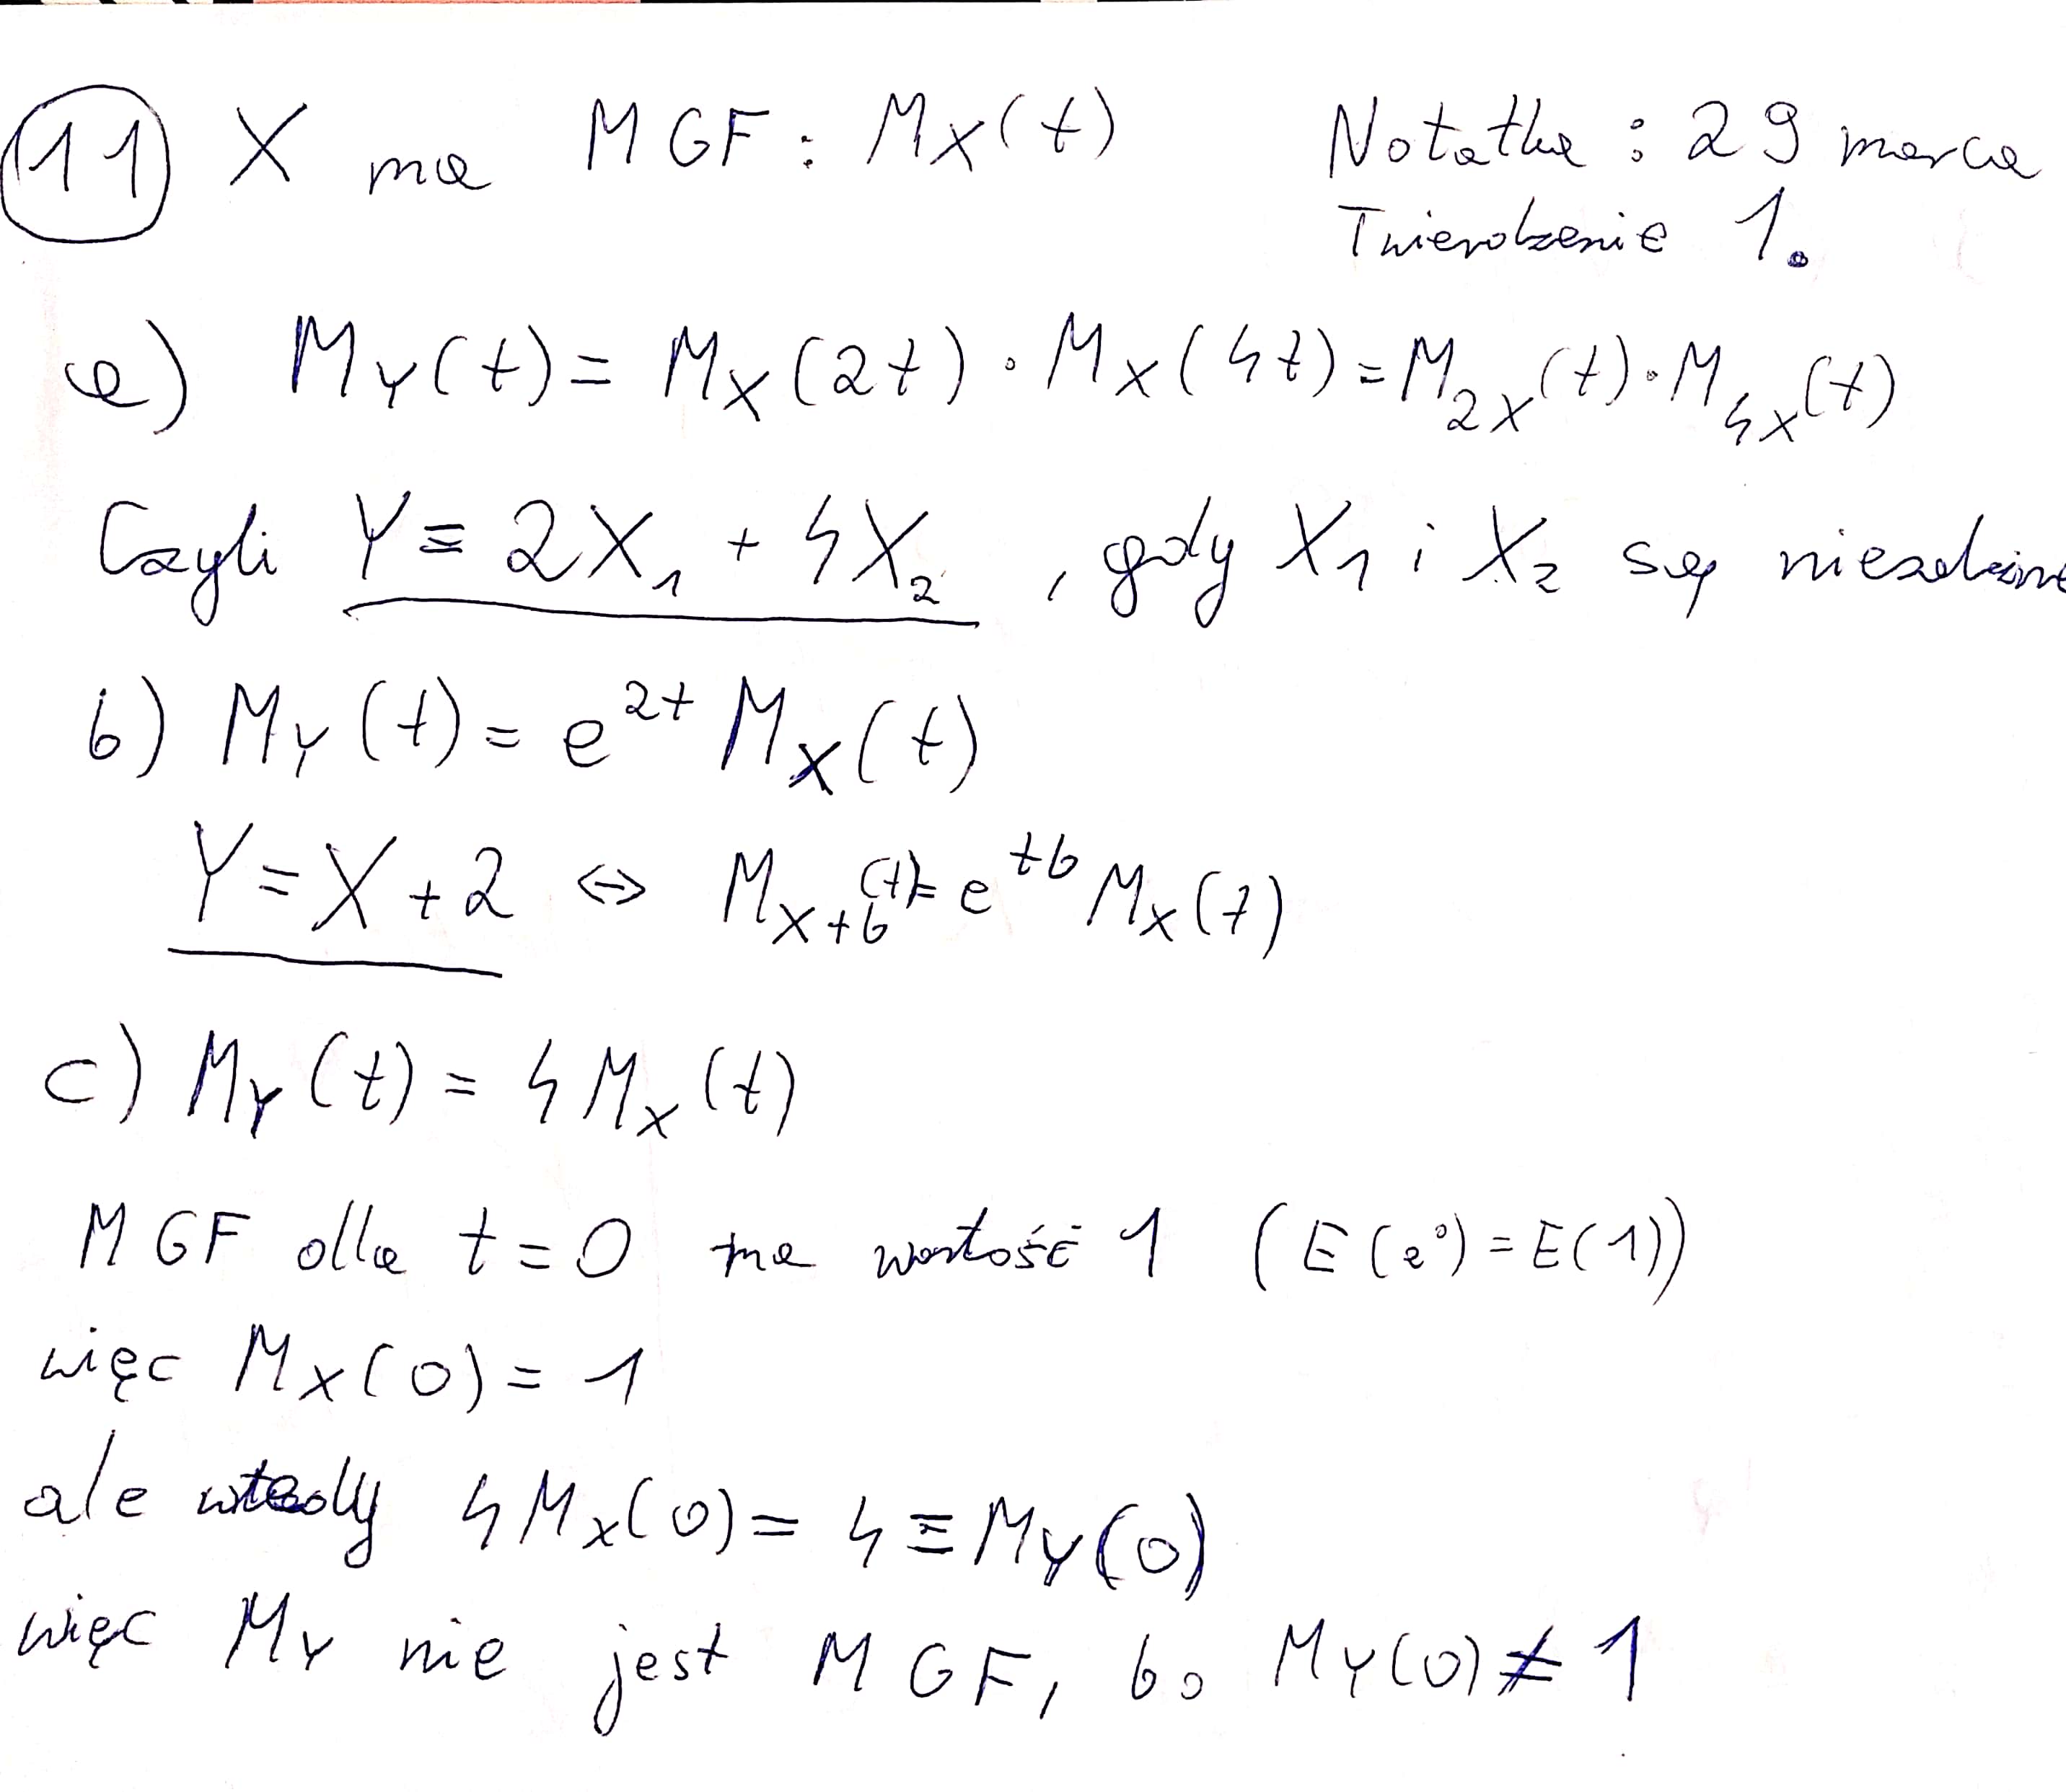 11 X ma MGF: M_X(t) Notatka: 29 marca
Twierdzenie 1.
a) M_Y(t) = M_X(2t) · M_X(4t) = M_{2X}(t) · M_{4X}(t)
Czyli Y = 2X_1 + 4X_2, gdy X_1 i X_2 są niezależne
b) M_Y(t) = e^{2t} M_X(t)
Y = X + 2 <=> M_{X+b}(t) = e^{tb} M_X(t)
c) M_Y(t) = 4M_X(t)
MGF dla t = 0 ma wartość 1 (E(e^0) = E(1))
więc M_X(0) = 1
ale wtedy 4M_X(0) = 4 ≡ M_Y(0)
więc M_Y nie jest MGF, bo M_Y(0) ≠ 1